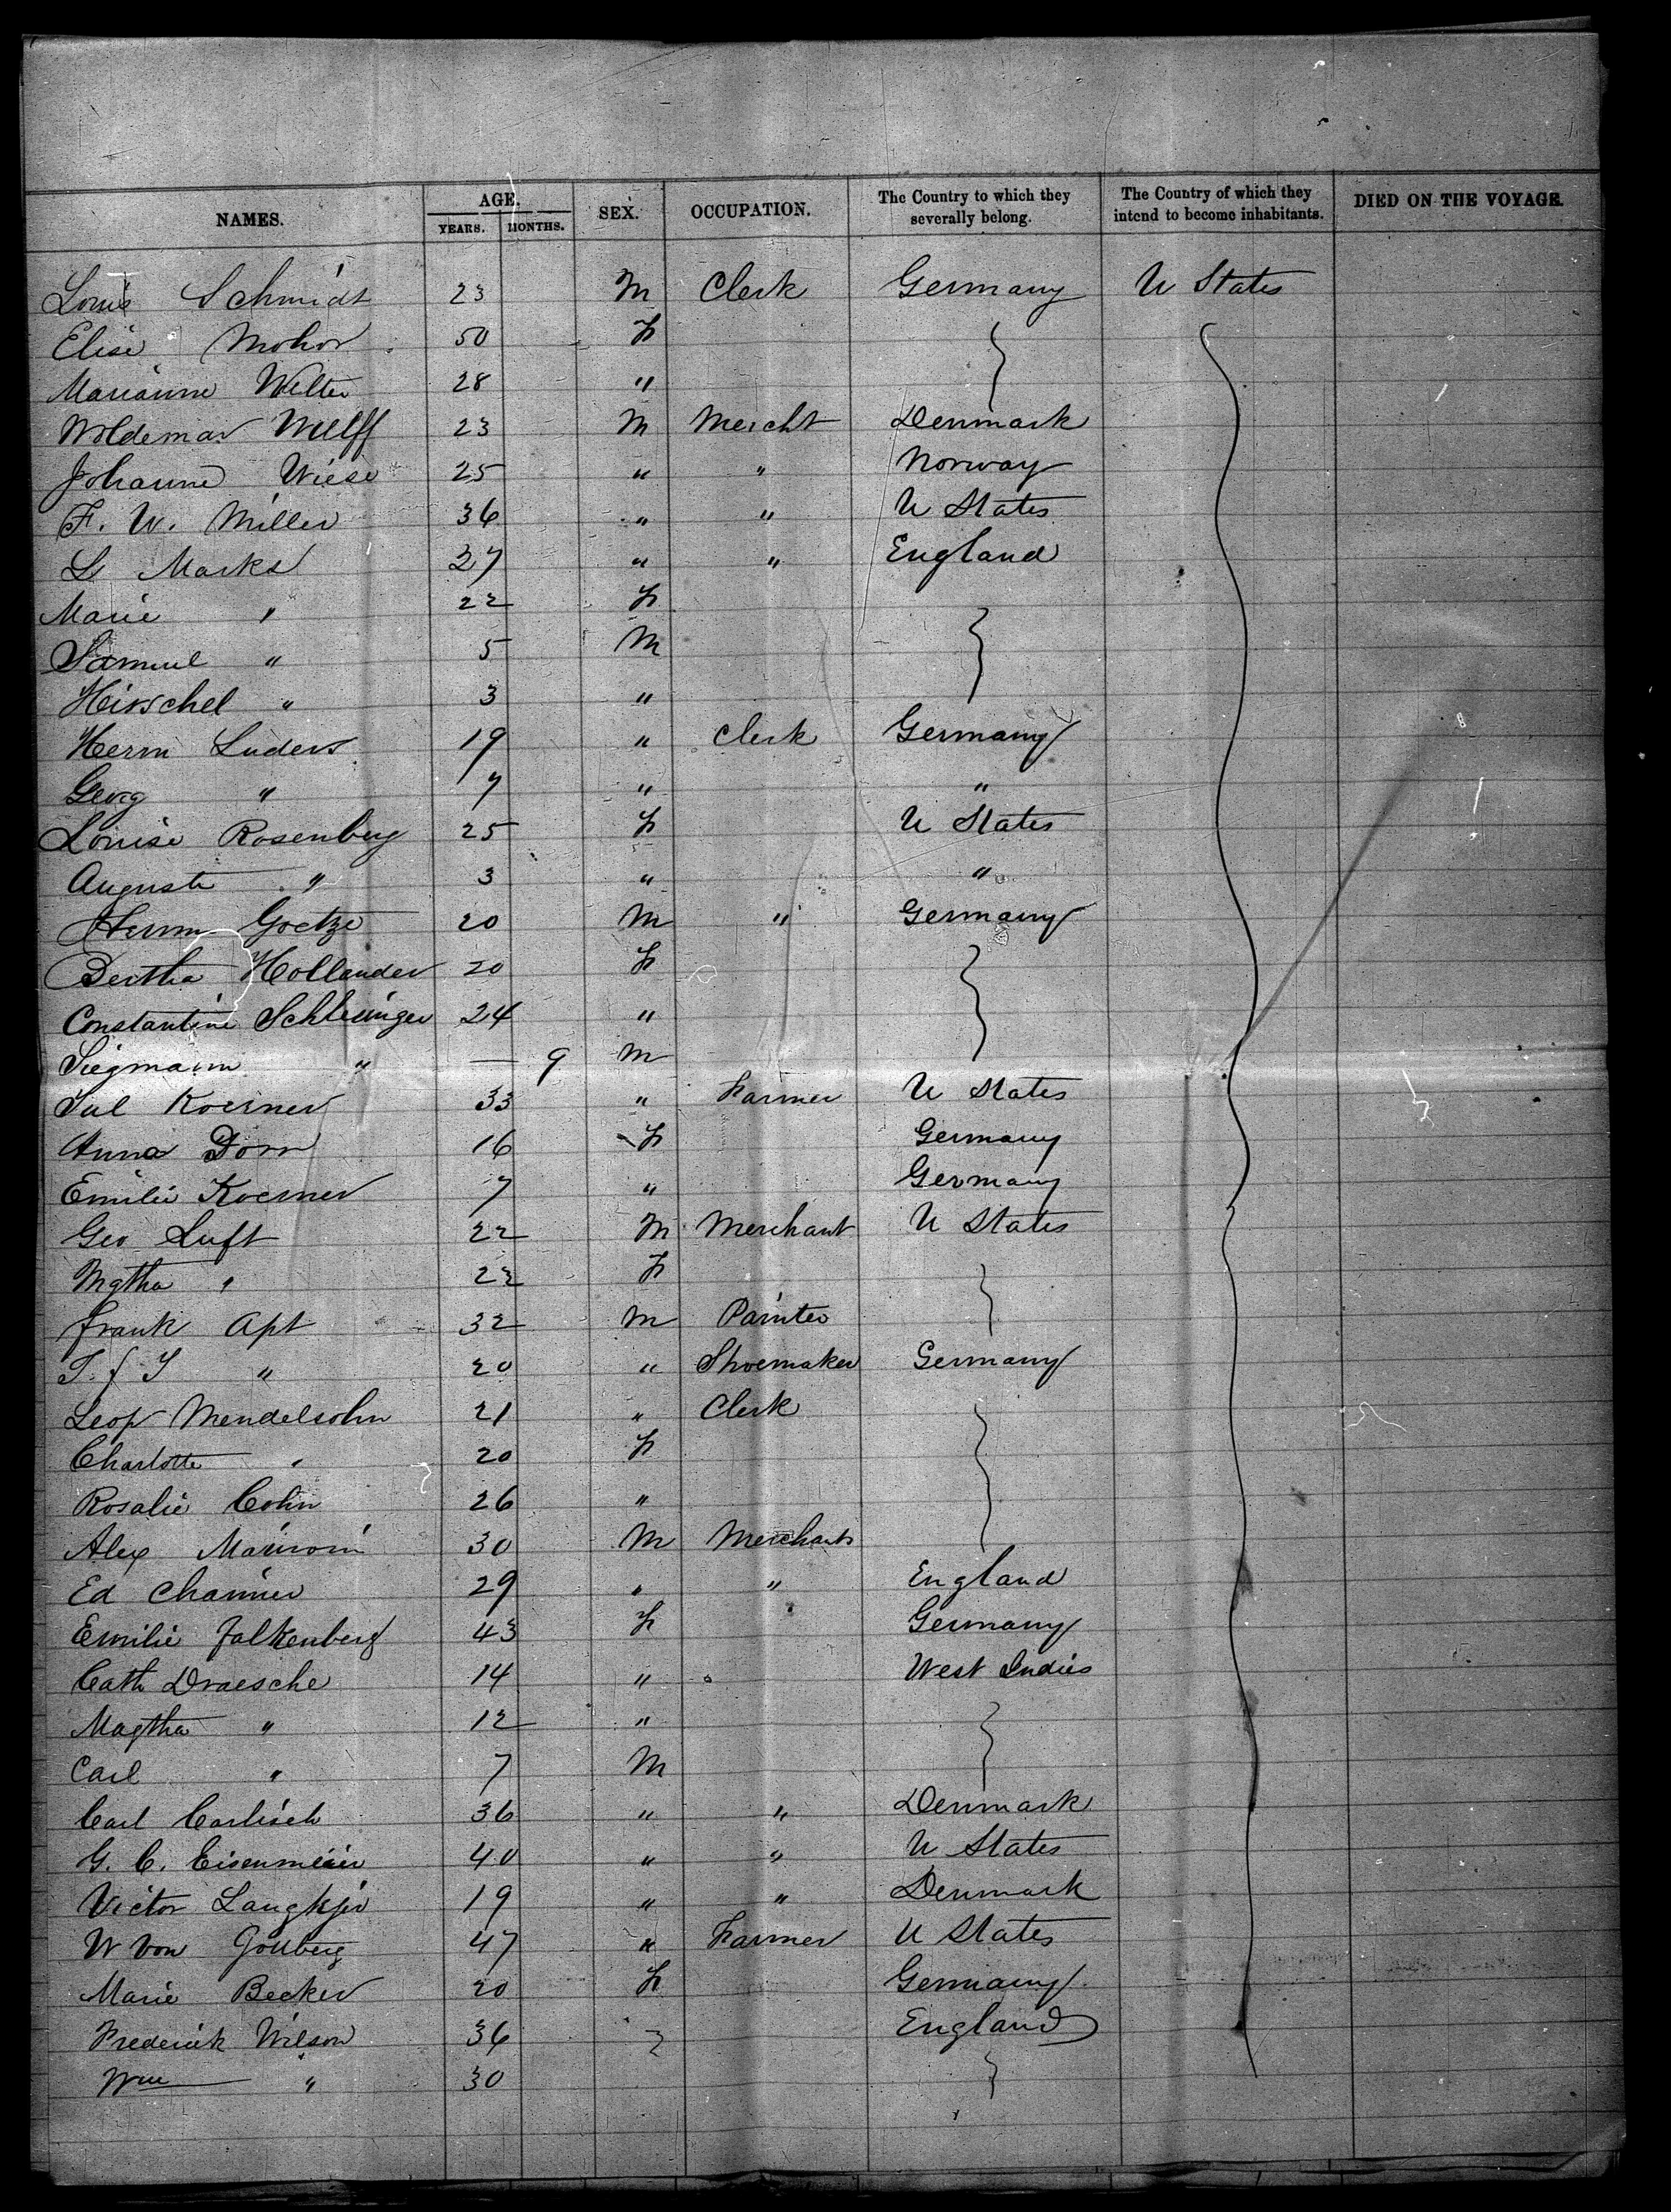 NAMES. AGE. YEARS. MONTHS. SEX. OCCUPATION. The Country to which they severally belong. The Country of which they intend to become inhabitants. DIED ON THE VOYAGE.
Louis Schmidt 23 M Clerk Germany U States
Elise Mohor 50 F
Marianne Welter 28 "
Woldemar Wulff 23 M Mercht Denmark
Johanne Wiese 25 " " Norway
F. W. Miller 36 " " U States
L Marks 27 " " England
Marie " 22 F
Samuel " 5 M
Hirschel " 3 "
Herm Luders 19 " Clerk Germany
Georg " 7 " "
Louise Rosenberg 25 F U States
Auguste " 3 " "
Herm Goetze 20 M " Germany
Bertha Hollander 20 F
Constantine Schlesinger 24 "
Siegmann " — 9 M
Jul Koerner 33 " Farmer U States
Anna Dorn 16 F Germany
Emilie Koerner 7 " Germany
Geo Luft 22 M Merchant U States
Mgtha " 22 F
Frank Apt 32 M Painter
" 20 " Shoemaker Germany
Leop Mendelsohn 21 " Clerk
Charlotte " 20 F
Rosalie Cohn 26 "
Alex 30 M Merchant
Ed 29 " " England
Emilie Falkenberg 43 F Germany
Cath Draesche 14 " West Indies
Magtha " 12 "
Carl " 7 M
Carl Carlisch 36 " " Denmark
G. C. Eisenmeier 40 " " U States
Victor 19 " " Denmark
W von Gottberg 47 " Farmer U States
Marie Becker 20 F Germany
Frederick Wilson 36 England
Wm " 30